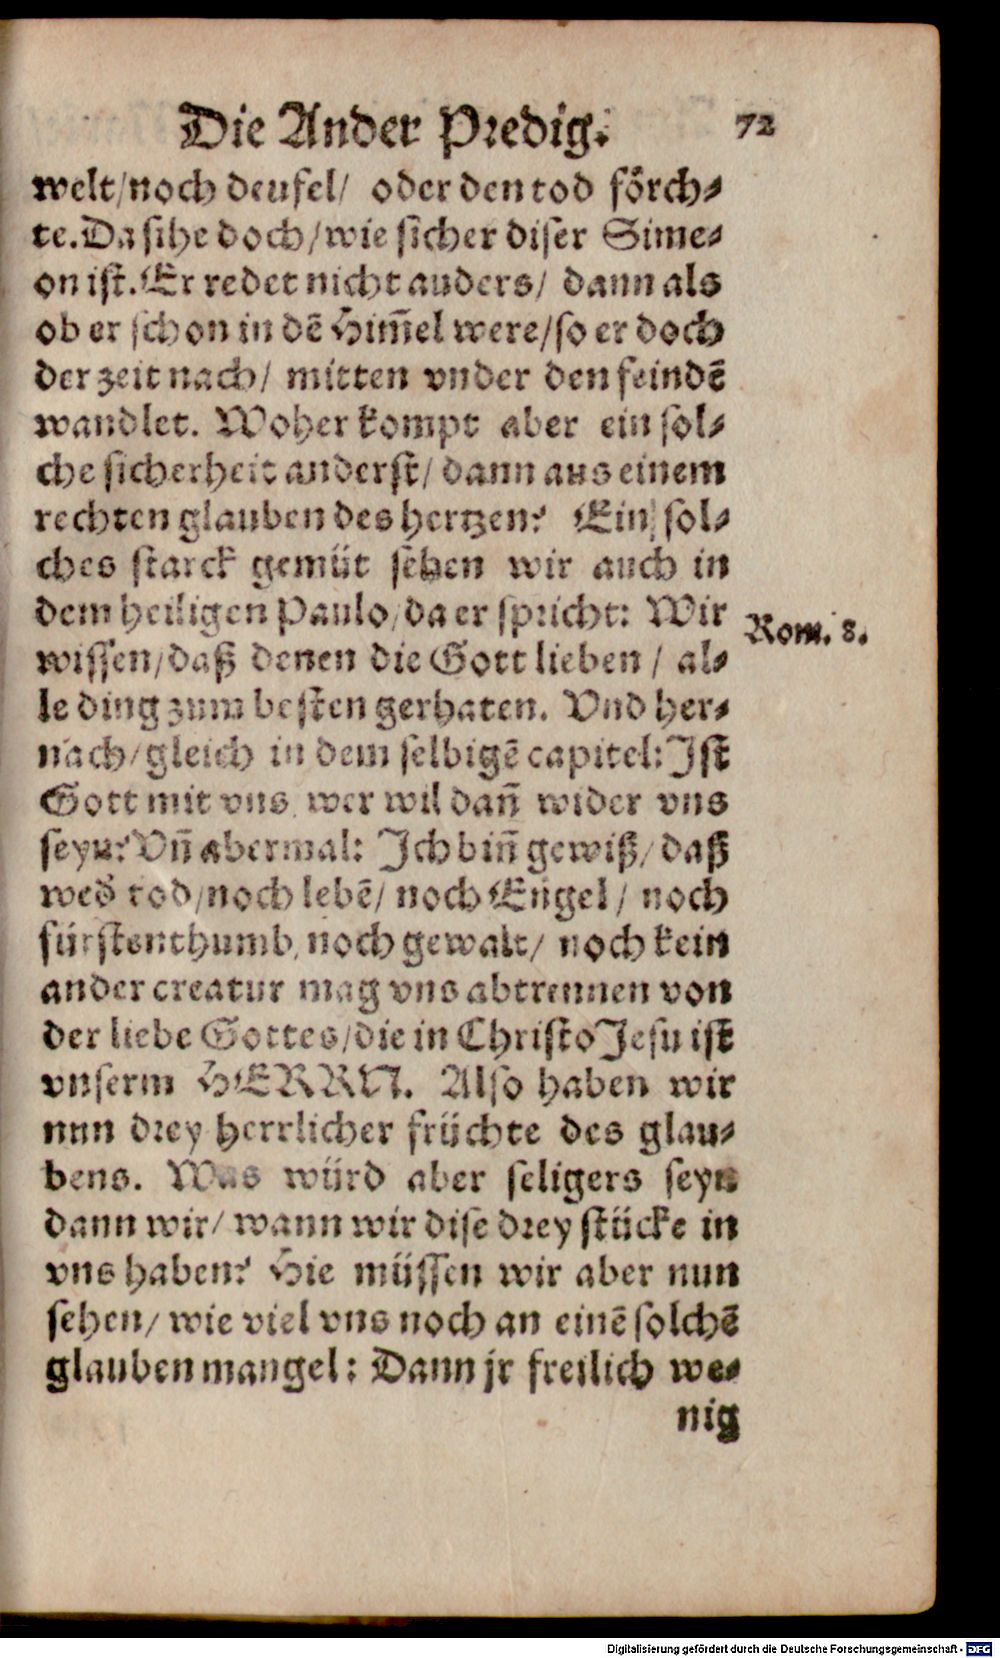 Die Ander Predig. 72
welt/noch deufel/ oder den tod förch⸗
te. Da sihe doch/wie sicher diser Sime⸗
on ist. Er redet nicht anders/ dann als
ob er schon in dẽ Him̃el were/so er doch
der zeit nach/ mitten vnder den feindẽ
wandlet. Woher kompt aber ein sol⸗
che sicherheit anderst/ dann aus einem
rechten glauben des hertzen? Ein sol⸗
ches starck gemüt sehen wir auch in
dem heiligen Paulo/da er spricht: Wir
Rom. 8.
wissen/daß denen die Gott lieben / al⸗
le ding zum besten gerhaten. Vnd her⸗
nach/gleich in dem selbigẽ capitel: Ist
Gott mit vns, wer wil dañ wider vns
seyn? Vñ abermal: Ich biñ gewiß/daß
wed̃ tod/noch lebẽ/ noch Engel/ noch
fürstenthumb, noch gewalt/ noch kein
ander creatur mag vns abtrennen von
der liebe Gottes/die in Christo Jesu ist
vnserm HERRN. Also haben wir
nun drey herrlicher früchte des glau⸗
bens. Was würd aber seligers seyn
dann wir/ wann wir dise drey stücke in
vns haben? Hie müssen wir aber nun
sehen/ wie viel vns noch an einẽ solchẽ
glauben mangel: Dann jr freilich we⸗
nig
Digitalisierung gefördert durch die Deutsche Forschungsgemeinschaft - DFG